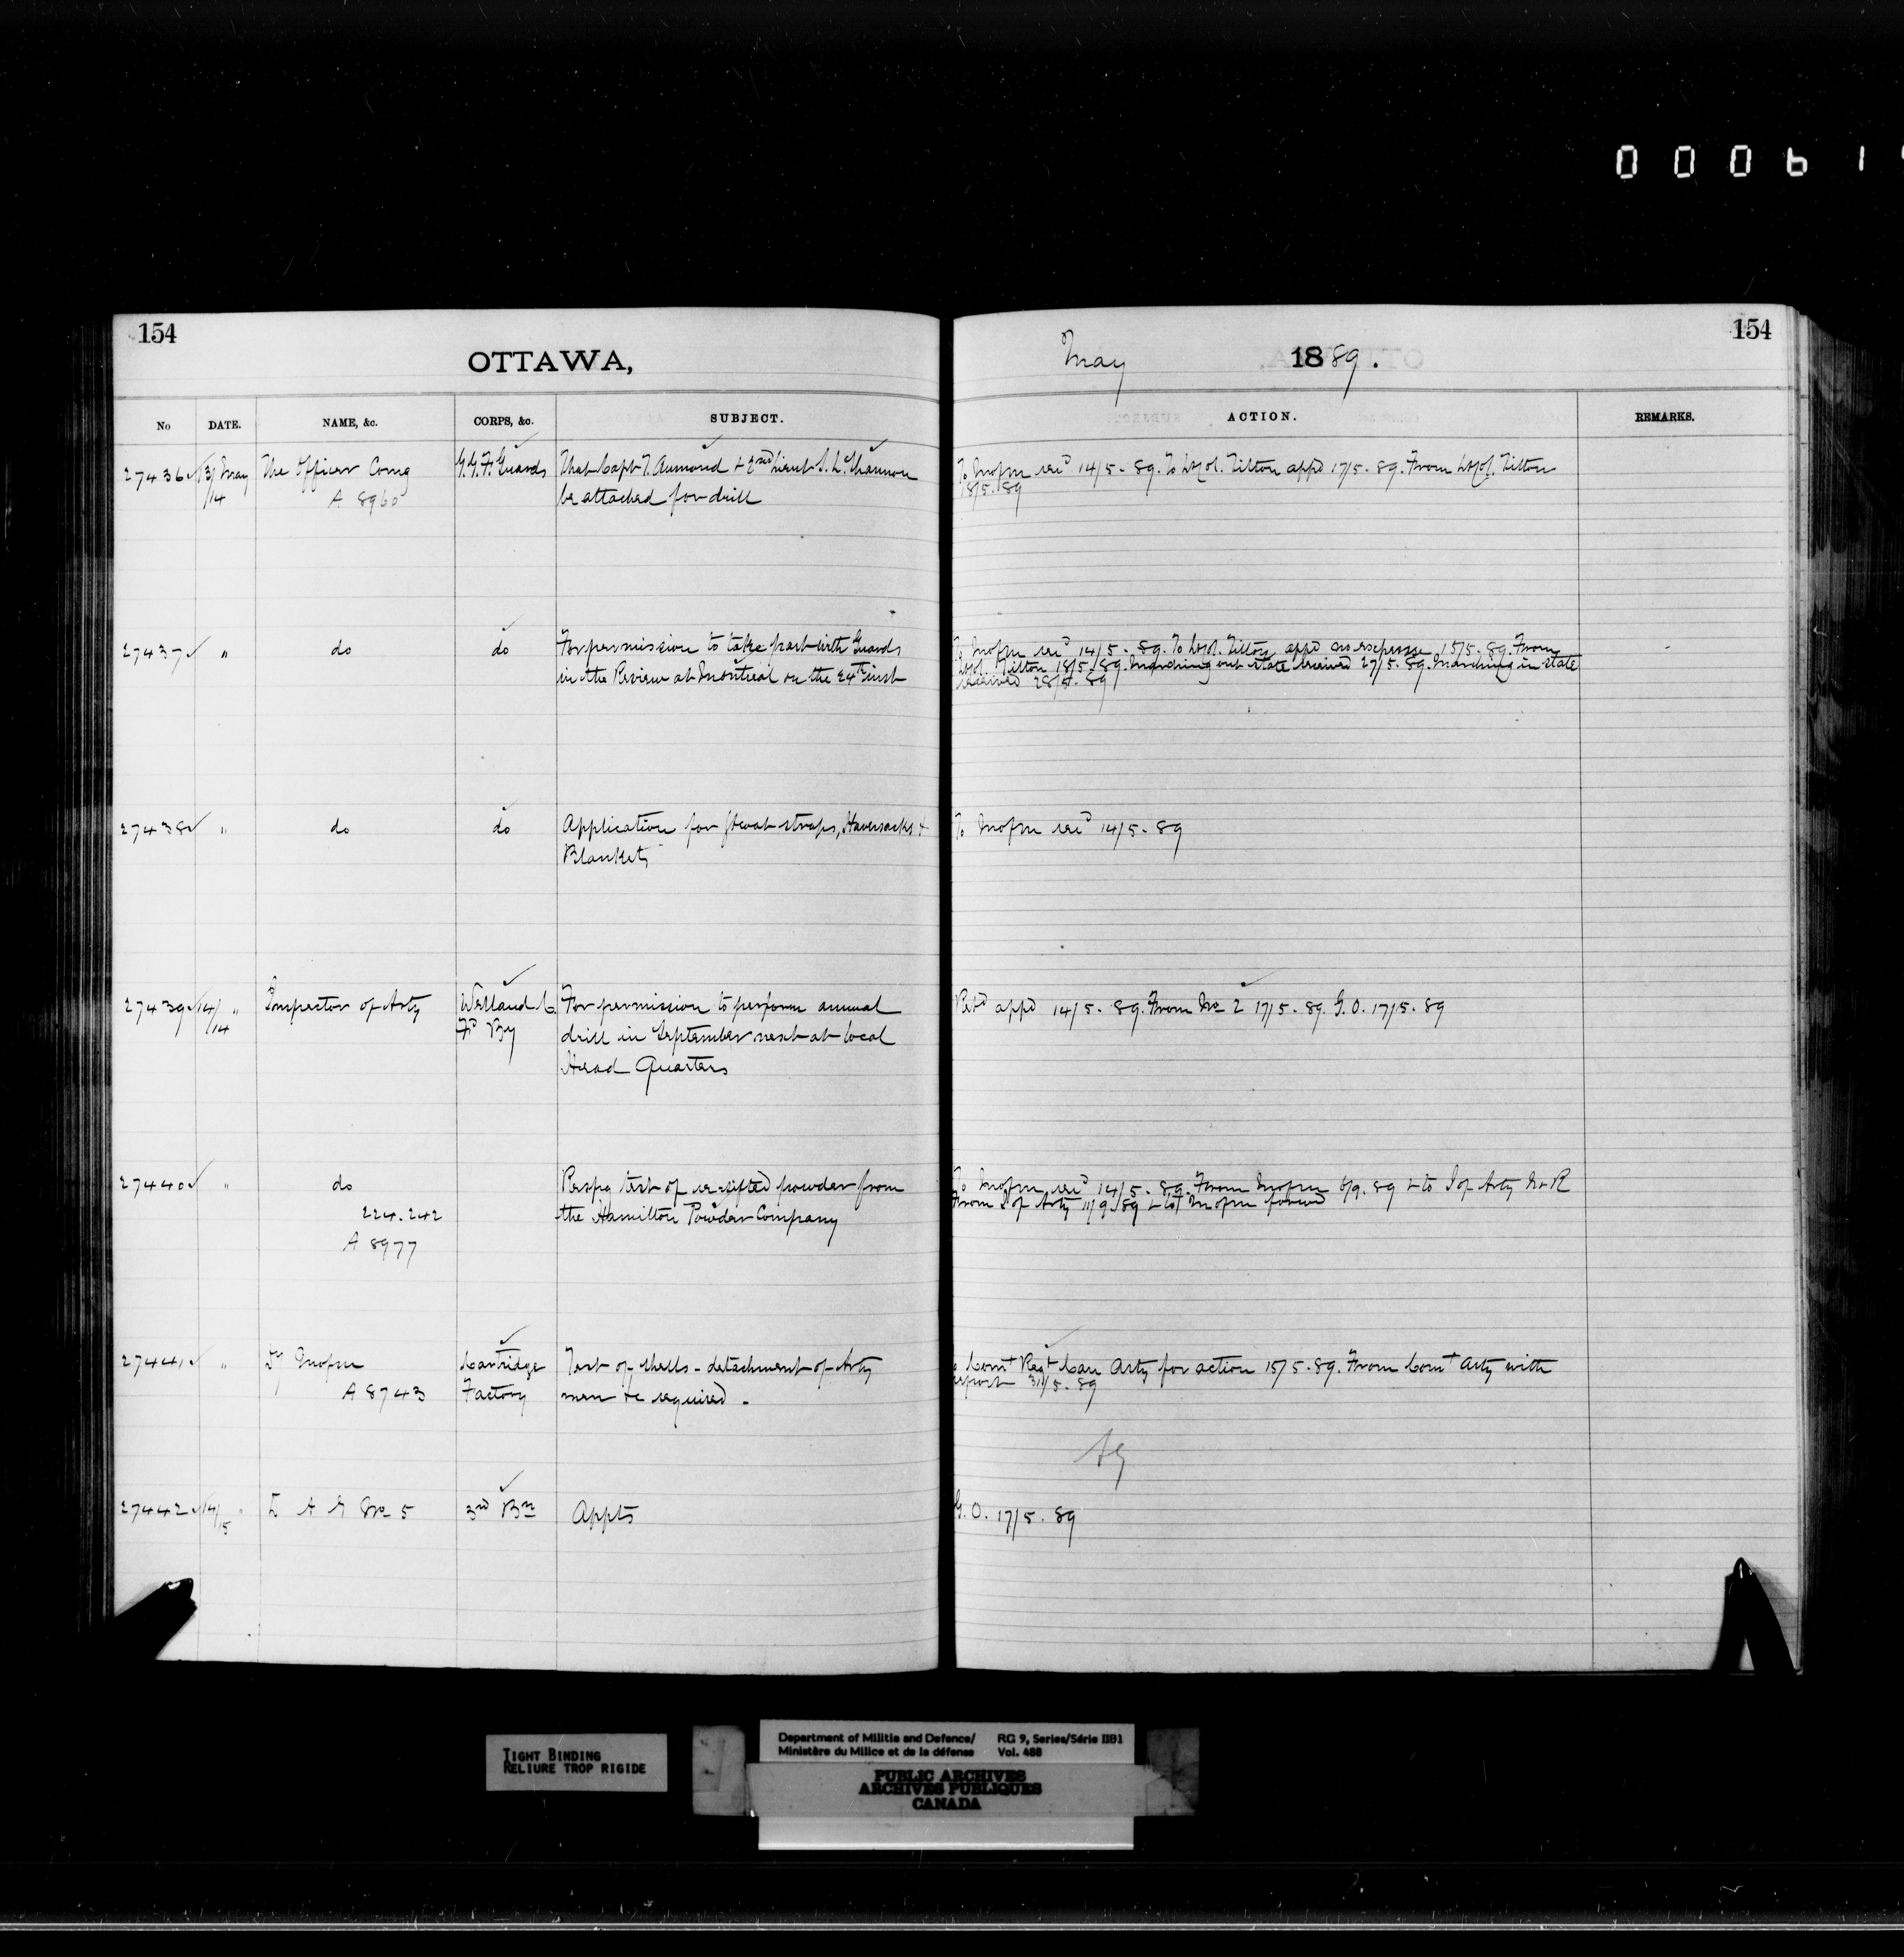 0 0 0 6 1
154
OTTAWA,
No DATE. NAME, &c. CORPS, &c. SUBJECT.
27436 ✓ 13/ May The Officer Comg G.G.F. Guards That Capt T. Aumond + 2nd Lieut S. L. Shannon
14 A 8960 be attached for drill
27437 ✓ " do do For permission to take part with Guards
in the Review at Montreal on the 24th inst
27438 ✓ " do do Application for Gt coat straps, Haversacks +
Blankets
27439 ✓ 14/ " Inspector of Arty Welland C. For permission to perform annual
14 Fd By drill in September next at local
Head Quarters
27440 ✓ " do Respg test of re-sifted powder from
224.242 the Hamilton Powder Company
A 8977
27441 ✓ " Dy Mofm Cartridge Test of shells - detachment of Arty
A 8743 Factory men &c required -
27442 ✓ 14/ " D A G No 5 3rd Bn Appts
15
154
May 1889.
ACTION. REMARKS.
To Mofm recd 14/5-89. To Lt Col. Tilton appd 17/5-89. From Lt Col. Tilton
18/5-89
To Mofm recd 14/5-89. To Lt Col. Tilton appd no expense 15/5-89. From
Lt Col. Tilton 18/5/89. Marching out state received 27/5-89. Marching in state
received 28/5-89
To Mofm recd 14/5-89
Retd appd 14/5-89. From No 2 17/5-89. G.O. 17/5-89
To Mofm recd 14/5-89. From Mofm 6/9.89 + to I of Arty N+R
From I of Arty 11/9/89 + to Mofm forwd
Comt Regt Can Arty for action 15/5-89. From Comt Arty with
report 31/5-89
G.O. 17/5.89
TIGHT BINDING
RELIURE TROP RIGIDE
Department of Militia and Defence/ RG 9, Series/Série IIB1
Ministère du Milice et de la défense Vol. 488
PUBLIC ARCHIVES
ARCHIVES PUBLIQUES
CANADA